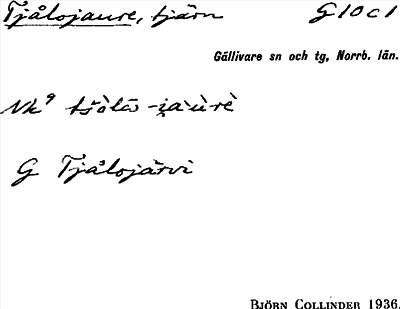 Tjålojaure, tjärn G10c1
Gällivare sn och tg, Norrb. län.
Nk⁹ tšòlō-i̯àùrè
G Tjålojärvi
BJÖRN COLLINDER 1936.